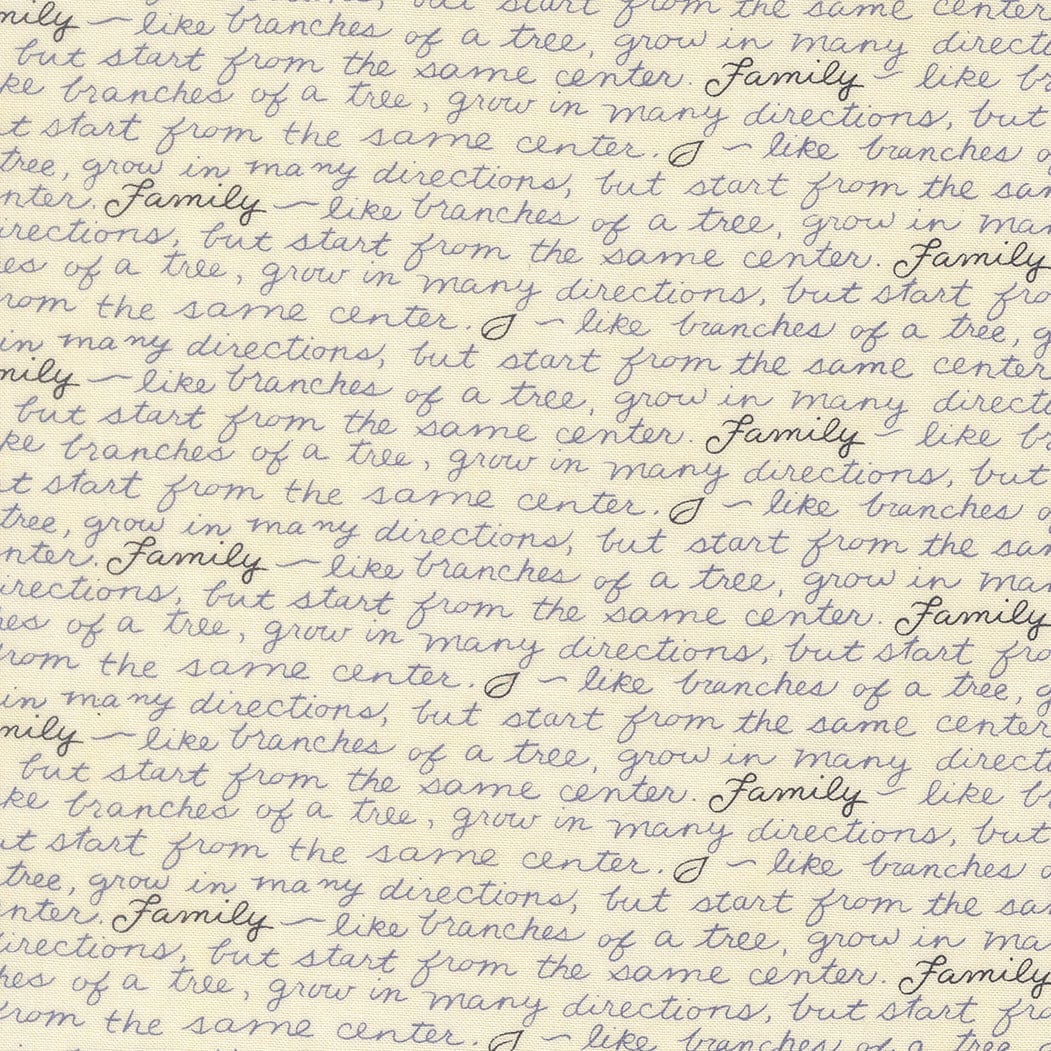 but start from the same center
mily ~ like branches of a tree, grow in many directi
but start from the same center. Family ~ like br
ke branches of a tree, grow in many directions, but
t start from the same center. ~ like branches o
tree, grow in many directions, but start from the sam
nter. Family ~ like branches of a tree, grow in man
irections, but start from the same center. Family
es of a tree, grow in many directions, but start fro
rom the same center. ~ like branches of a tree, g
in many directions, but start from the same center
mily ~ like branches of a tree, grow in many directi
but start from the same center. Family ~ like br
ke branches of a tree, grow in many directions, but
t start from the same center. ~ like branches o
tree, grow in many directions, but start from the sam
nter. Family ~ like branches of a tree, grow in man
irections, but start from the same center. Family
hes of a tree, grow in many directions, but start fro
from the same center. ~ like branches of a tree, g
in many directions, but start from the same center
mily ~ like branches of a tree, grow in many directi
but start from the same center. Family ~ like b
ke branches of a tree, grow in many directions, but
ut start from the same center. ~ like branches o
tree, grow in many directions, but start from the sa
nter. Family ~ like branches of a tree, grow in ma
directions, but start from the same center. Family
hes of a tree, grow in many directions, but start fro
from the same center. ~ like branches of a tree